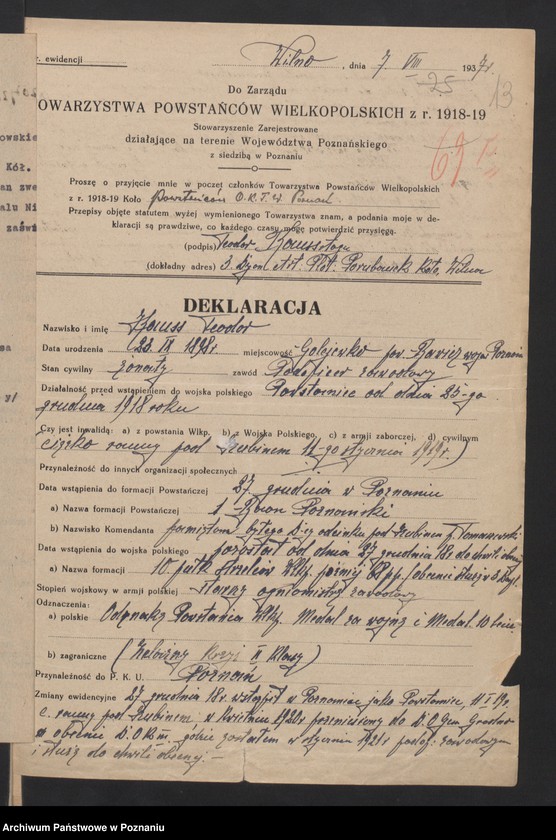 r. ewidencji Wilno, dnia 7 VIII 1937r.
25 13
Do Zarządu
OWARZYSTWA POWSTAŃCÓW WIELKOPOLSKICH z r. 1918-19
Stowarzyszenie Zarejestrowane
działające na terenie Województwa Poznańskiego
z siedzibą w Poznaniu
Proszę o przyjęcie mnie w poczet członków Towarzystwa Powstańców Wielkopolskich
z r. 1918-19 Koło Powstańców O.K.T.W. Poznań
Przepisy objęte statutem wyżej wymienionego Towarzystwa znam, a podania moje w de-
klaracji są prawdziwe, co każdego czasu mogę potwierdzić przysięgą.
(podpis) Teodor
(dokładny adres) 3. Dyon Art. Plot. Porubanek koło Wilna
DEKLARACJA
Nazwisko i imię Teodor
Data urodzenia 23. IX 1898r miejscowość Golejewko pow. Rawicz woj. Poznań
Stan cywilny żonaty zawód Podoficer zawodowy
Działalność przed wstąpieniem do wojska polskiego Powstaniec od dnia 25-go
grudnia 1918 roku
Czy jest inwalidą: a) z powstania Wlkp. b) z Wojska Polskiego, c) z armji zaborczej, d) cywilnym
ciężko ranny pod Szubinem 11-go stycznia 1919r.)
Przynależność do innych organizacji społecznych
Data wstąpienia do formacji Powstańczej 27 grudnia w Poznaniu
a) Nazwa formacji Powstańczej 1 Baon Poznański
b) Nazwisko Komendanta byłego D-cy odcinka pod Szubinem p. Tomaszewski
Data wstąpienia do wojska polskiego pozostał od dnia 27 grudnia 18r do chwili
a) Nazwa formacji 10 pułk strzelców Wlkp. później 68 p.p. (obecnie służę w 3
Stopień wojskowy w armji polskiej Starszy ogniomistrz zawodowy
Odznaczenia:
a) polskie Odznakę Powstańca Wlkp. Medal za wojnę i Medal 10 lecia
b) zagraniczne (Żelazny Krzyż II klasy)
Przynależność do P. K. U. Poznań
Zmiany ewidencyjne 27 grudnia 18r. wstąpił w Poznaniu jako Powstaniec, 11 I 19r.
c. ranny pod Szubinem, w kwietniu 1920r przeniesiony do D.O.Gen Grodno
w obecnie D.O.K III. gdzie zostałem w styczniu 1921r podof. zawodowym
i służę do chwili obecnej. —
owskie
Kół.
an zwe
alu Ni
zaświ
sa
y/
Archiwum Państwowe w Poznaniu
www.szukajwarchiwach.gov.pl